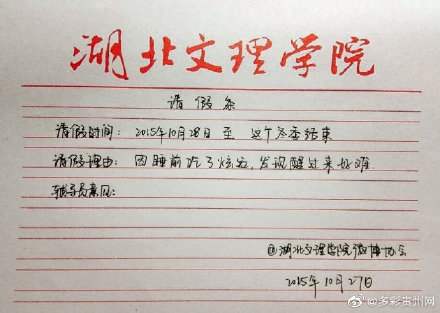 湖北文理学院
请假条
请假时间：2015年10月28日 至 这个冬季结束
请假理由：因睡前吃了炫迈，发现醒过来好难.
辅导员意见：
@湖北文理学院微博协会
2015年10月27日
@多彩贵州网